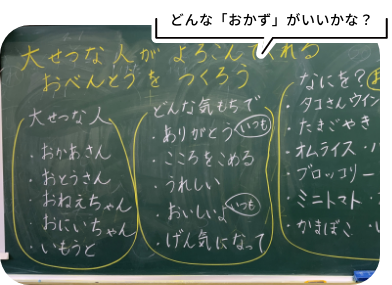 どんな「おかず」がいいかな？
大せつな人が よろこんでくれる
おべんとうを つくろう
大せつな人
・おかあさん
・おとうさん
・おねえちゃん
・おにいちゃん
・いもうと
どんな気もちで
・ありがとう いつも
・こころをこめる
・うれしい
・おいしいよ いつも
・げん気になって
なにを？
・タコさんウイン
・たまごやき
・オムライス・
・ブロッコリー
・ミニトマト・
・かまぼこ ・